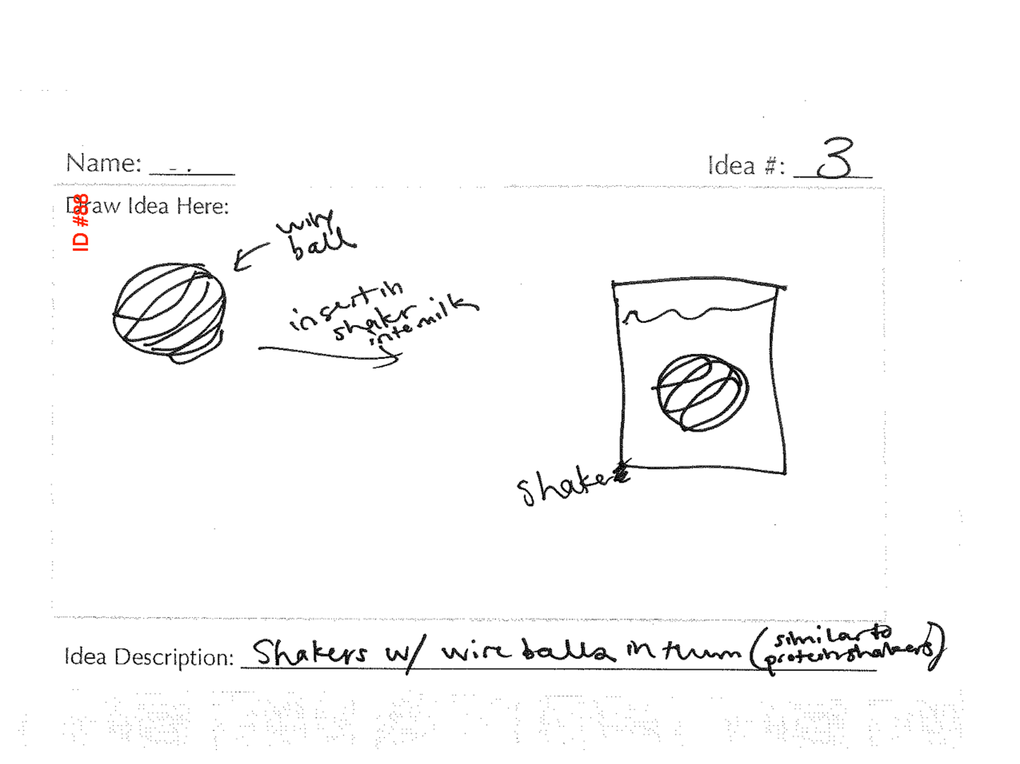 Name: - .
Idea #: 3
Draw Idea Here:
ID #88
wiry
ball
insert in
shaker
into milk
shaker
Idea Description: Shakers w/ wire balls in them (similar to
protein shakers)